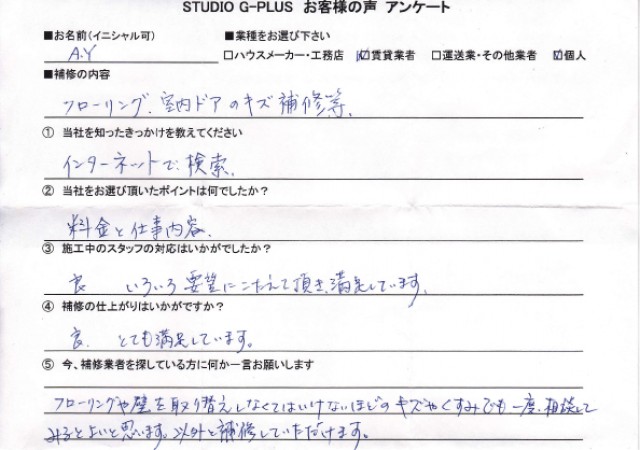 STUDIO G-PLUS お客様の声 アンケート
■お名前(イニシャル可) ■業種をお選び下さい
A.Y □ハウスメーカー・工務店 ☑賃貸業者 □運送業・その他業者 ☑個人
■補修の内容
フローリング、室内ドアのキズ補修等、
① 当社を知ったきっかけを教えてください
インターネットで検索、
② 当社をお選び頂いたポイントは何でしたか?
料金と仕事内容、
③ 施工中のスタッフの対応はいかがでしたか?
良 いろいろ要望にこたえて頂き満足しています。
④ 補修の仕上がりはいかがですか?
良、 とても満足しています。
⑤ 今、補修業者を探している方に何か一言お願いします
フローリングや壁を取り替えしなくてはいけないほどのキズやくすみでも一度、相談して
みるとよいと思います。以外と補修していただけます。